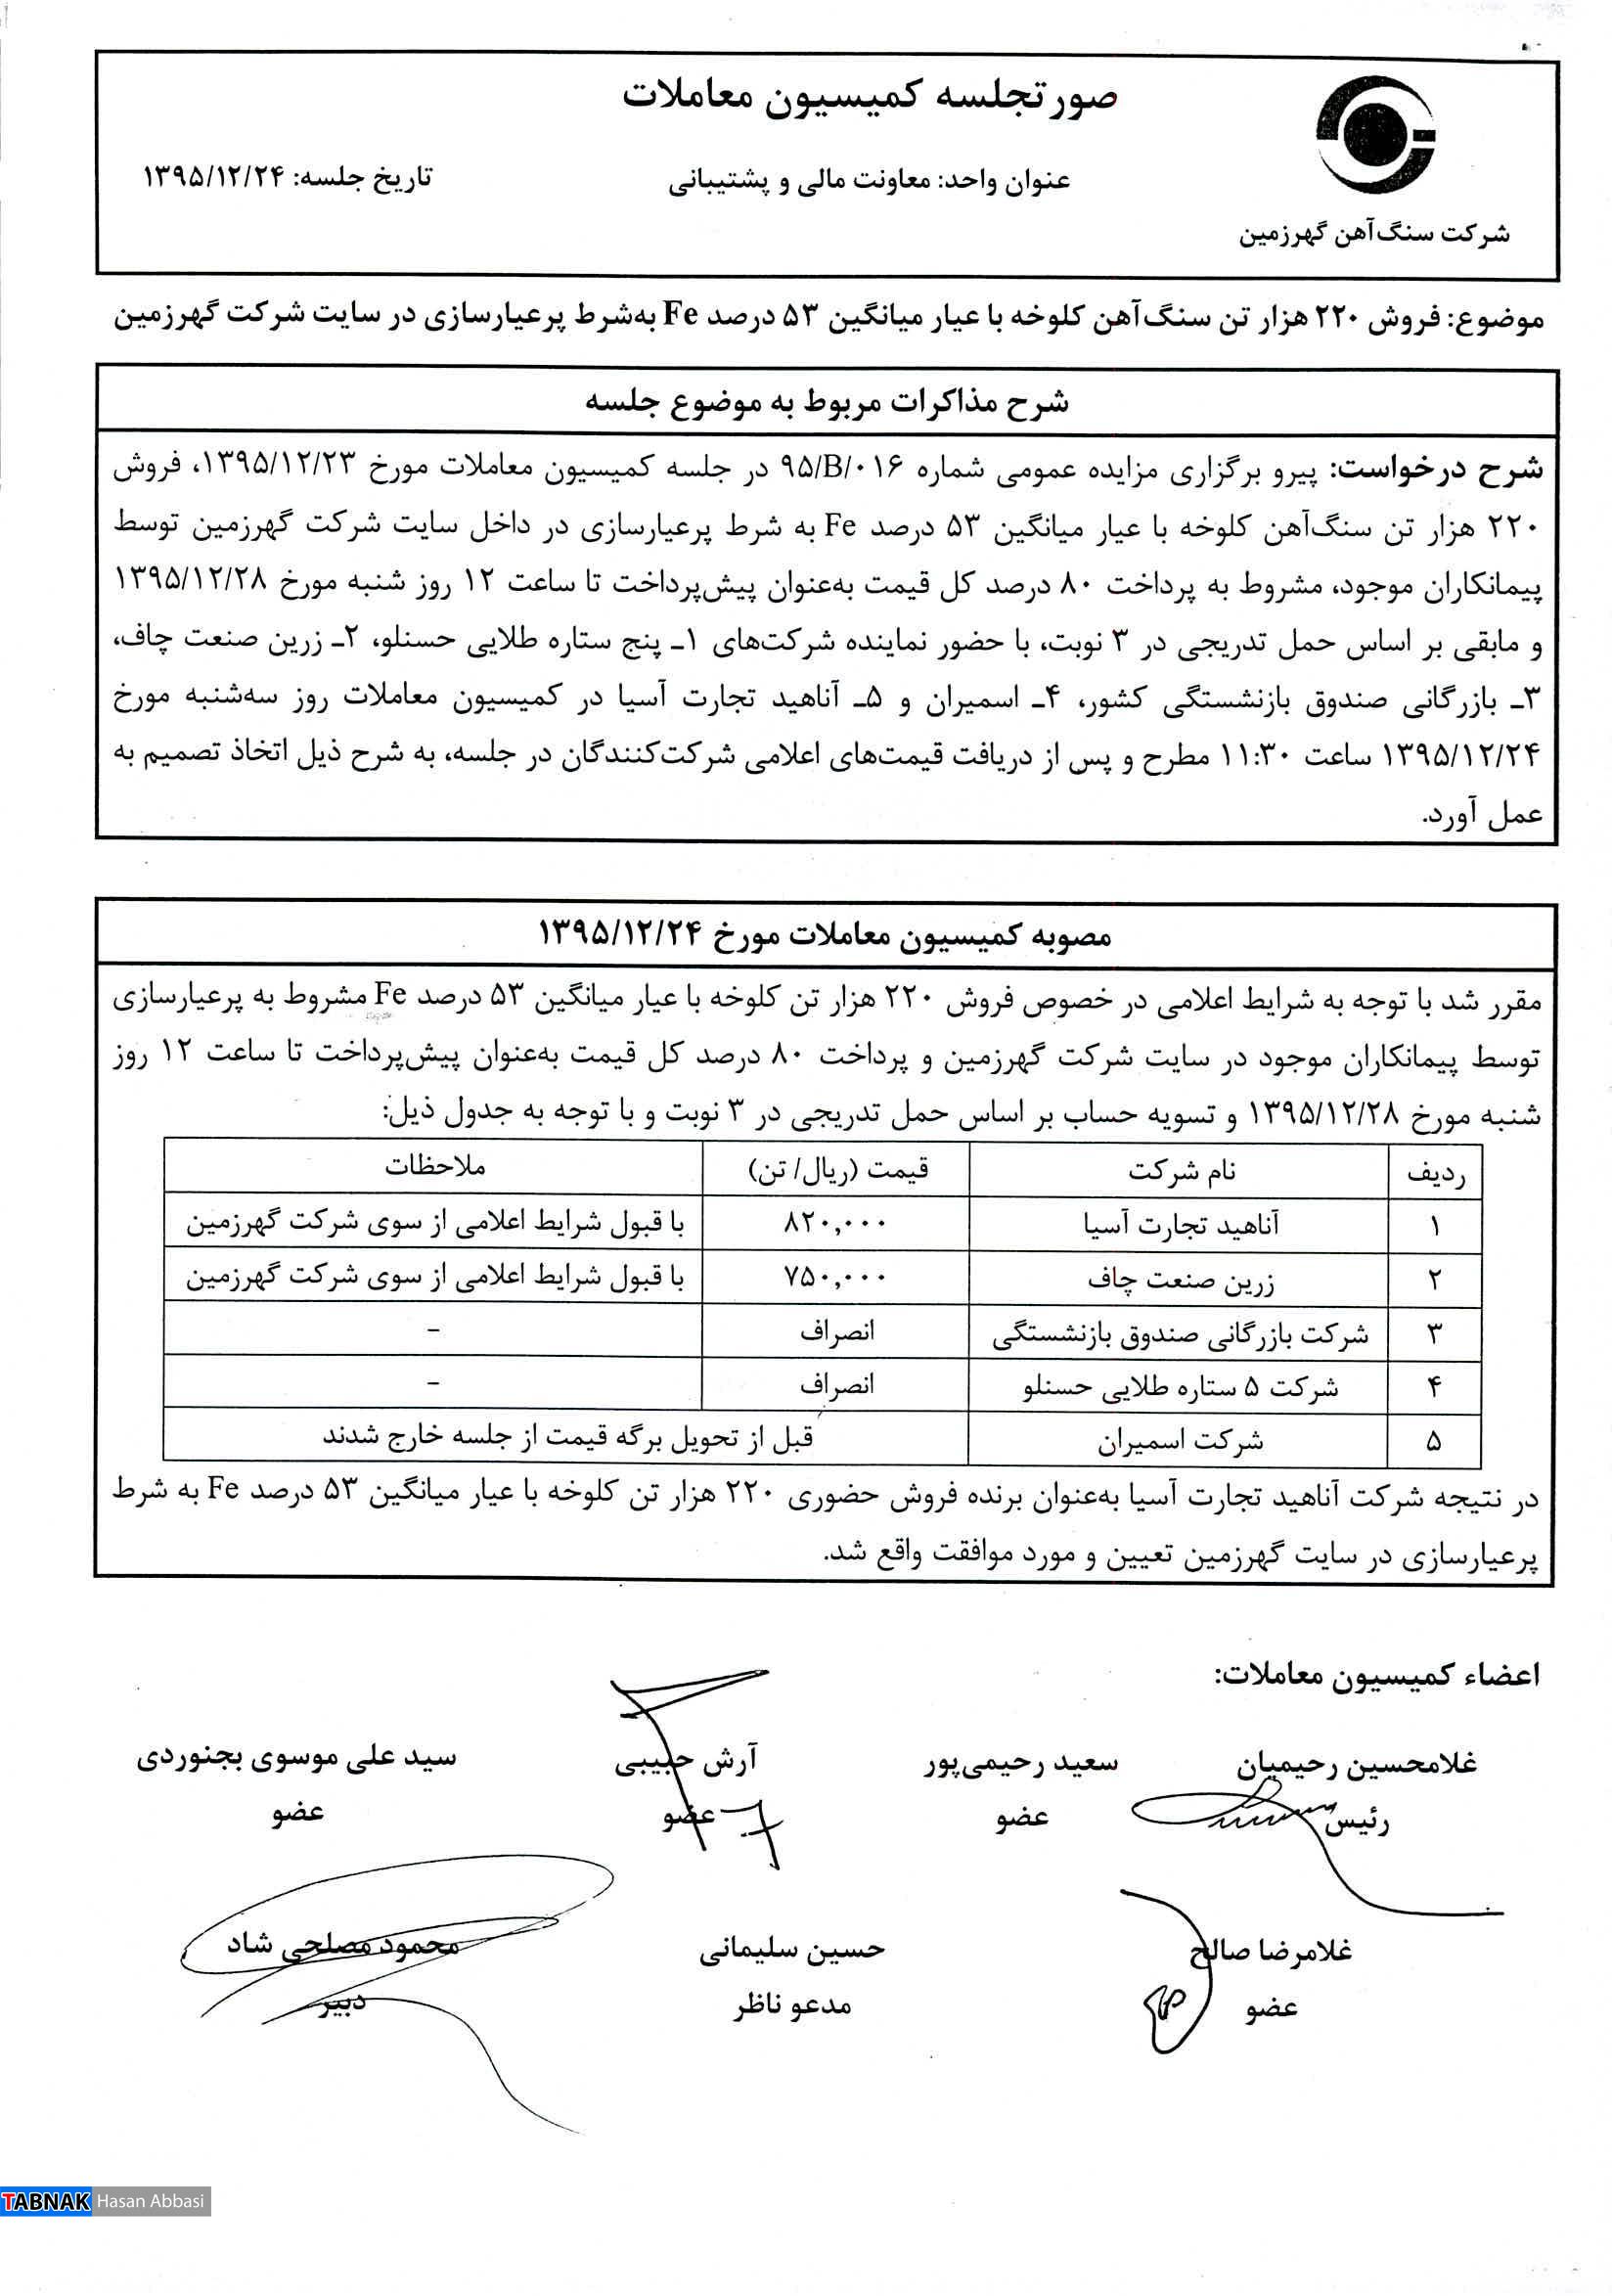 صورتجلسه کمیسیون معاملات
عنوان واحد: معاونت مالی و پشتیبانی
تاریخ جلسه: ۱۳۹۵/۱۲/۲۴
شرکت سنگ‌آهن گهرزمین
موضوع: فروش ۲۲۰ هزار تن سنگ‌آهن کلوخه با عیار میانگین ۵۳ درصد Fe به‌شرط پرعیارسازی در سایت شرکت گهرزمین
شرح مذاکرات مربوط به موضوع جلسه
شرح درخواست: پیرو برگزاری مزایده عمومی شماره ۹۵/B/۰۱۶ در جلسه کمیسیون معاملات مورخ ۱۳۹۵/۱۲/۲۳، فروش
۲۲۰ هزار تن سنگ‌آهن کلوخه با عیار میانگین ۵۳ درصد Fe به شرط پرعیارسازی در داخل سایت شرکت گهرزمین توسط
پیمانکاران موجود، مشروط به پرداخت ۸۰ درصد کل قیمت به‌عنوان پیش‌پرداخت تا ساعت ۱۲ روز شنبه مورخ ۱۳۹۵/۱۲/۲۸
و مابقی بر اساس حمل تدریجی در ۳ نوبت، با حضور نماینده شرکت‌های ۱ـ پنج ستاره طلایی حسنلو، ۲ـ زرین صنعت چاف،
۳ـ بازرگانی صندوق بازنشستگی کشور، ۴ـ اسمیران و ۵ـ آناهید تجارت آسیا در کمیسیون معاملات روز سه‌شنبه مورخ
۱۳۹۵/۱۲/۲۴ ساعت ۱۱:۳۰ مطرح و پس از دریافت قیمت‌های اعلامی شرکت‌کنندگان در جلسه، به شرح ذیل اتخاذ تصمیم به
عمل آورد.
مصوبه کمیسیون معاملات مورخ ۱۳۹۵/۱۲/۲۴
مقرر شد با توجه به شرایط اعلامی در خصوص فروش ۲۲۰ هزار تن کلوخه با عیار میانگین ۵۳ درصد Fe مشروط به پرعیارسازی
توسط پیمانکاران موجود در سایت شرکت گهرزمین و پرداخت ۸۰ درصد کل قیمت به‌عنوان پیش‌پرداخت تا ساعت ۱۲ روز
شنبه مورخ ۱۳۹۵/۱۲/۲۸ و تسویه حساب بر اساس حمل تدریجی در ۳ نوبت و با توجه به جدول ذیل:
ردیف نام شرکت قیمت (ریال/ تن) ملاحظات
۱ آناهید تجارت آسیا ۸۲۰,۰۰۰ با قبول شرایط اعلامی از سوی شرکت گهرزمین
۲ زرین صنعت چاف ۷۵۰,۰۰۰ با قبول شرایط اعلامی از سوی شرکت گهرزمین
۳ شرکت بازرگانی صندوق بازنشستگی انصراف –
۴ شرکت ۵ ستاره طلایی حسنلو انصراف –
۵ شرکت اسمیران قبل از تحویل برگه قیمت از جلسه خارج شدند
در نتیجه شرکت آناهید تجارت آسیا به‌عنوان برنده فروش حضوری ۲۲۰ هزار تن کلوخه با عیار میانگین ۵۳ درصد Fe به شرط
پرعیارسازی در سایت گهرزمین تعیین و مورد موافقت واقع شد.
اعضاء کمیسیون معاملات:
غلامحسین رحیمیان سعید رحیمی‌پور آرش حبیبی سید علی موسوی بجنوردی
رئیس عضو عضو عضو
غلامرضا صالح حسین سلیمانی محمود مصلحی شاد
عضو مدعو ناظر دبیر
TABNAK Hasan Abbasi